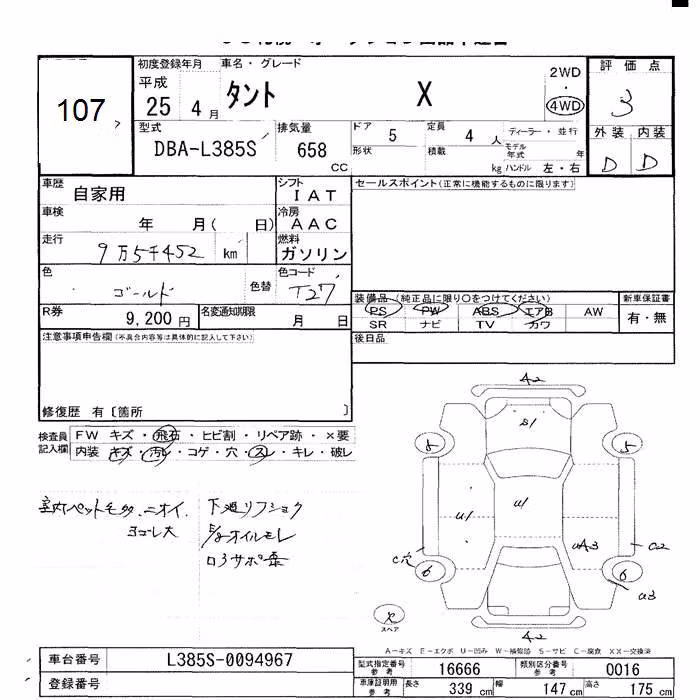 107
初度登録年月
平成
25 4 月
車名・グレード
タント X
2WD
・
4WD
評価点
3
外装 内装
D D
型式
DBA-L385S
排気量
658
CC
ドア 5
形状
定員 4 人
積載 kg
ディーラー・並行
モデル年式 年
ハンドル 左・右
車歴 自家用
シフト IAT
車検 年 月( 日)
冷房 AAC
走行 9万5千452 km
燃料 ガソリン
色 ゴールド
色替
色コード T27
R券 9,200 円
名変通知期限 月 日
セールスポイント(正常に機能するものに限ります)
装備品 (純正品に限り○をつけてください)
PS PW ABS エアB AW
SR ナビ TV カワ
新車保証書
有・無
後日品
注意事項申告欄(不具合内容等は具体的に記入して下さい)
修復歴 有〔箇所 〕
検査員記入欄
FW キズ・飛石・ヒビ割・リペア跡・×要
内装 キズ・汚レ・コゲ・穴・スレ・キレ・破レ
室内ペット毛多、ニオイ、
ヨゴレ大
下廻リフショク
E/gオイルモレ
A2
5
5
U/
U/
UA3
C穴
6
6
A2
A-キズ E-エクボ U-凹み W-補修跡 S-サビ C-腐食 XX-交換済
スペア
車台番号 L385S-0094967
登録番号
型式指定番号 参考 16666
類別区分番号 参考 0016
車庫証明用 参考
長さ 339 cm
幅 147 cm
高さ 175 cm